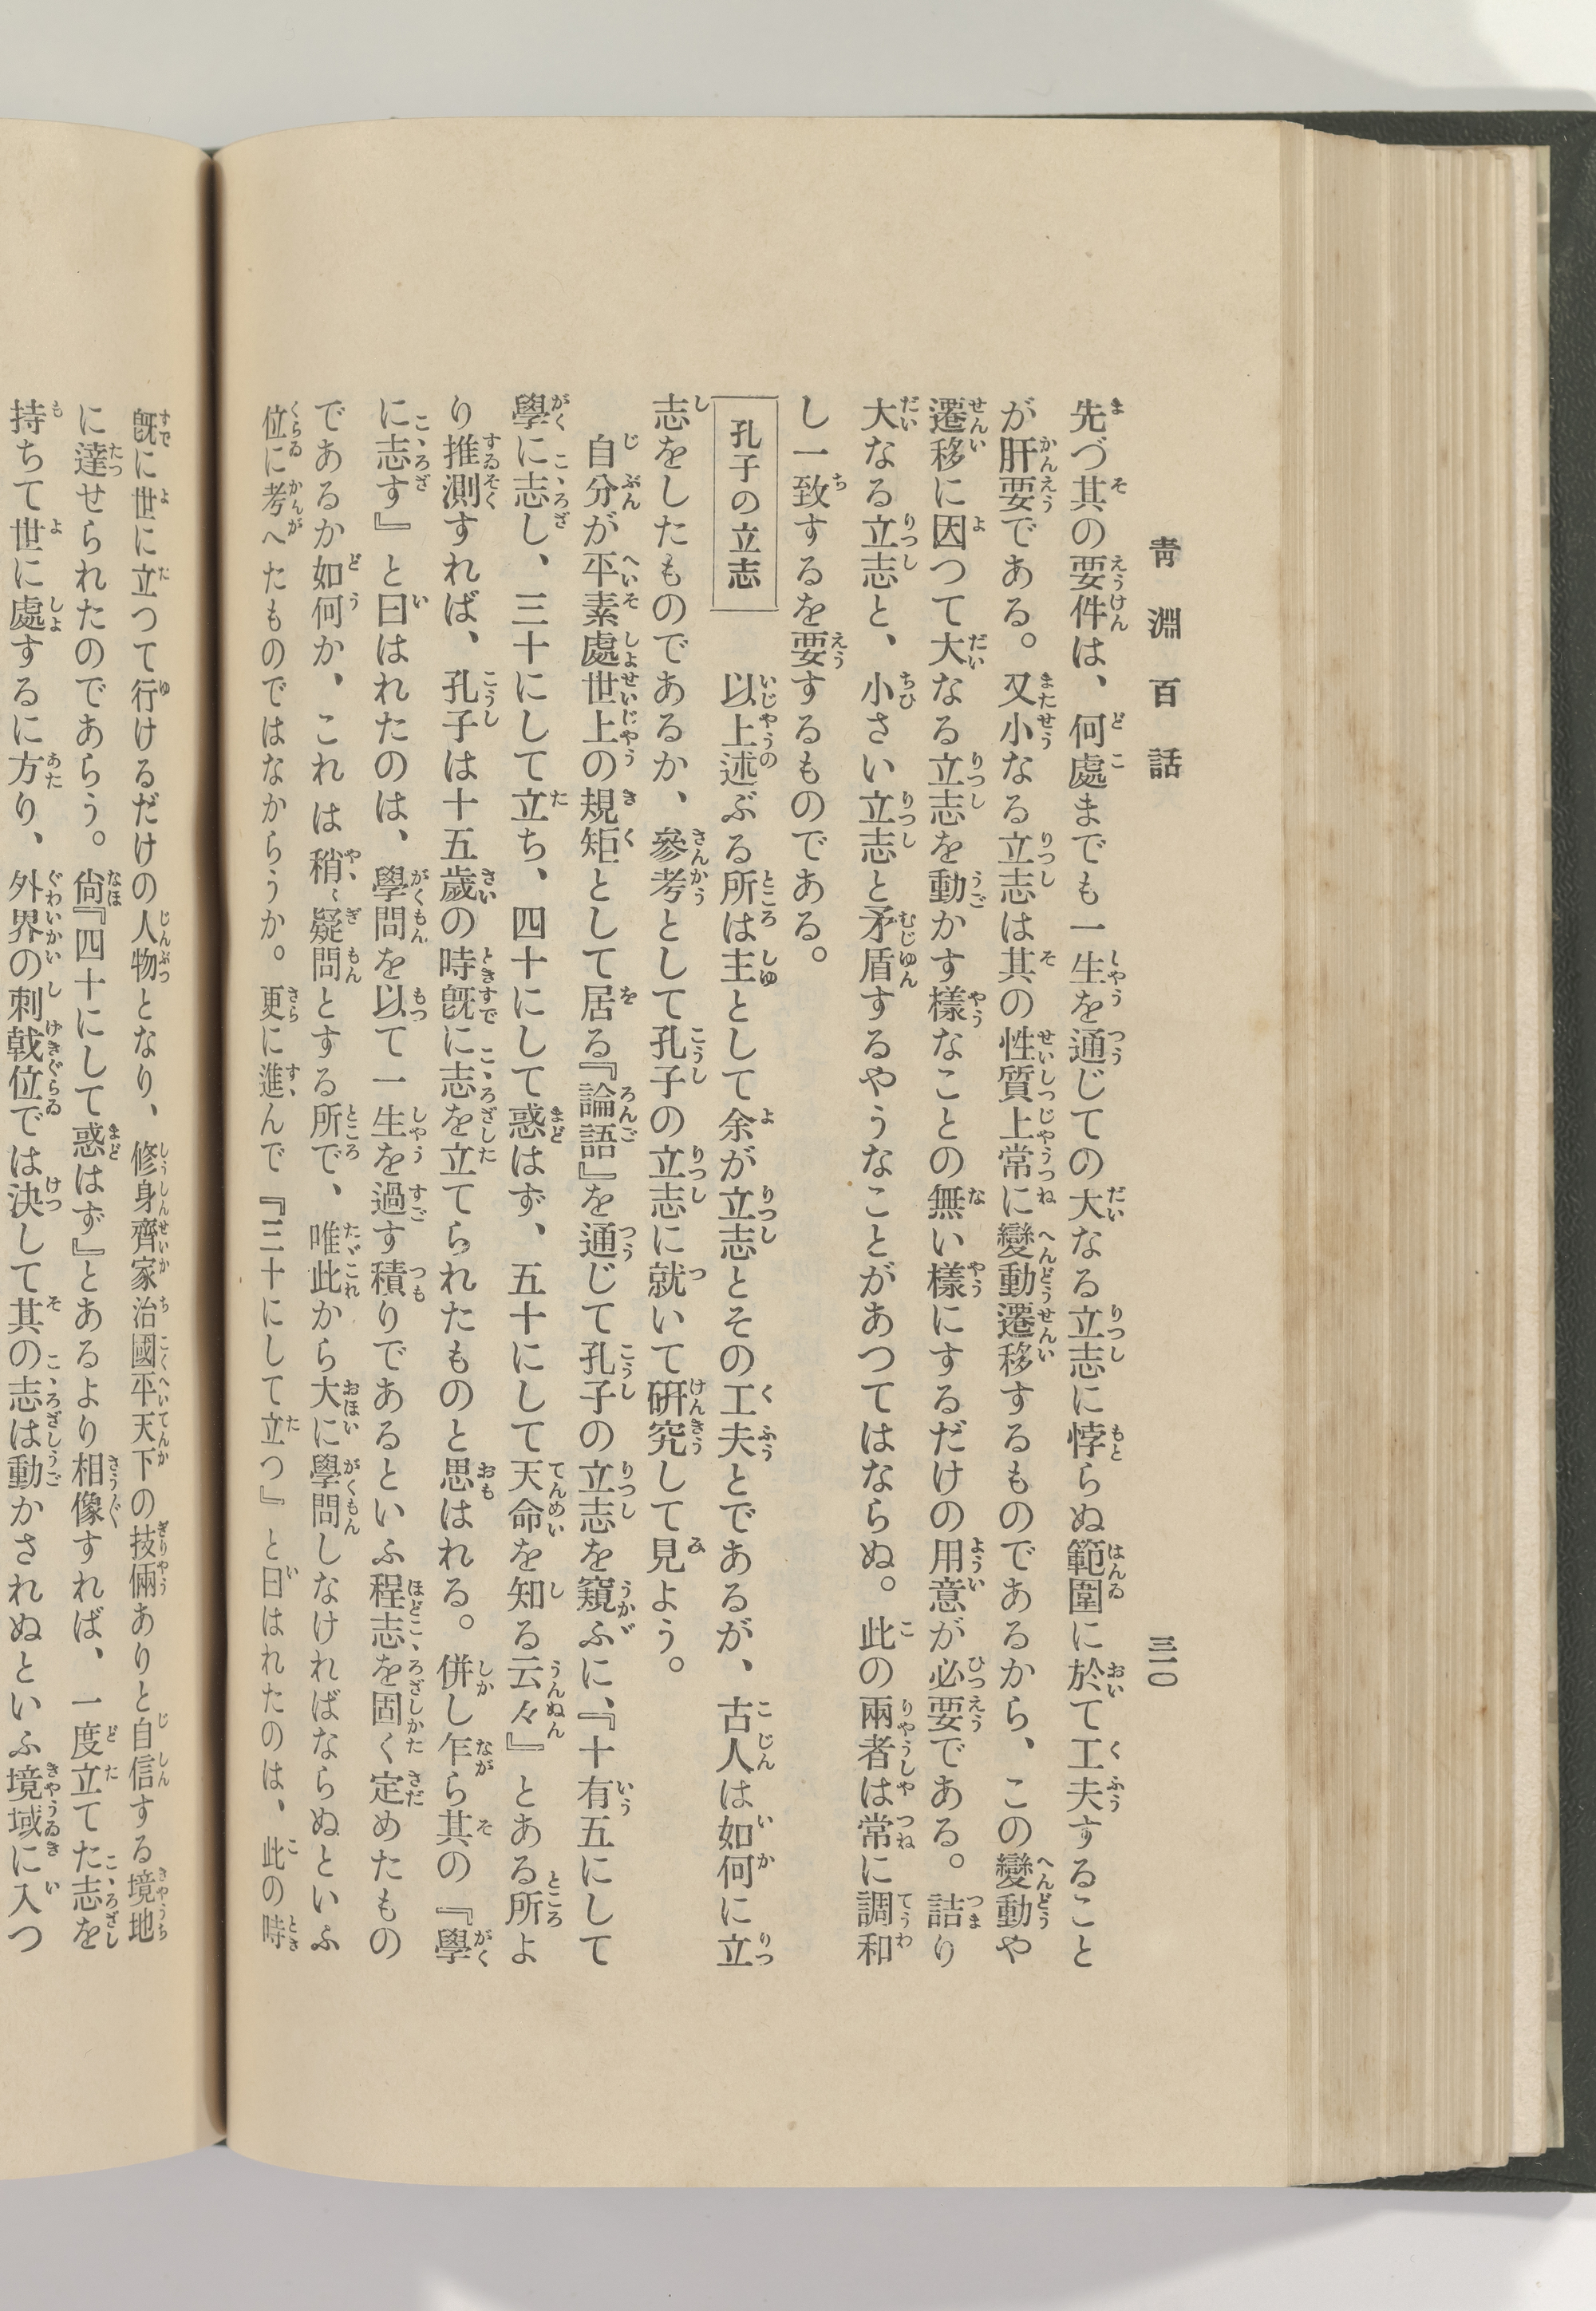 靑淵百話
三一〇
先づ其の要件は、何處までも一生を通じての大なる立志に悖らぬ範圍に於て工夫すること
が肝要である。又小なる立志は其の性質上常に變動遷移するものであるから、この變動や
遷移に因つて大なる立志を動かす樣なことの無い樣にするだけの用意が必要である。詰り
大なる立志と、小さい立志と矛盾するやうなことがあつてはならぬ。此の兩者は常に調和
し一致するを要するものである。
孔子の立志
以上述ぶる所は主として余が立志とその工夫とであるが、古人は如何に立
志をしたものであるか、參考として孔子の立志に就いて硏究して見よう。
自分が平素處世上の規矩として居る『論語』を通じて孔子の立志を窺ふに、『十有五にして
學に志し、三十にして立ち、四十にして惑はず、五十にして天命を知る云々』とある所よ
り推測すれば、孔子は十五歲の時旣に志を立てられたものと思はれる。併し乍ら其の『學
に志す』と曰はれたのは、學問を以て一生を過す積りであるといふ程志を固く定めたもの
であるか如何か、これは稍〻疑問とする所で、唯此から大に學問しなければならぬといふ
位に考へたものではなからうか。更に進んで『三十にして立つ』と曰はれたのは、此の時
旣に世に立つて行けるだけの人物となり、修身齊家治國平天下の技倆ありと自信する境地
に達せられたのであらう。尙『四十にして惑はず』とあるより相像すれば、一度立てた志を
持ちて世に處するに方り、外界の刺戟位では決して其の志は動かされぬといふ境域に入つ